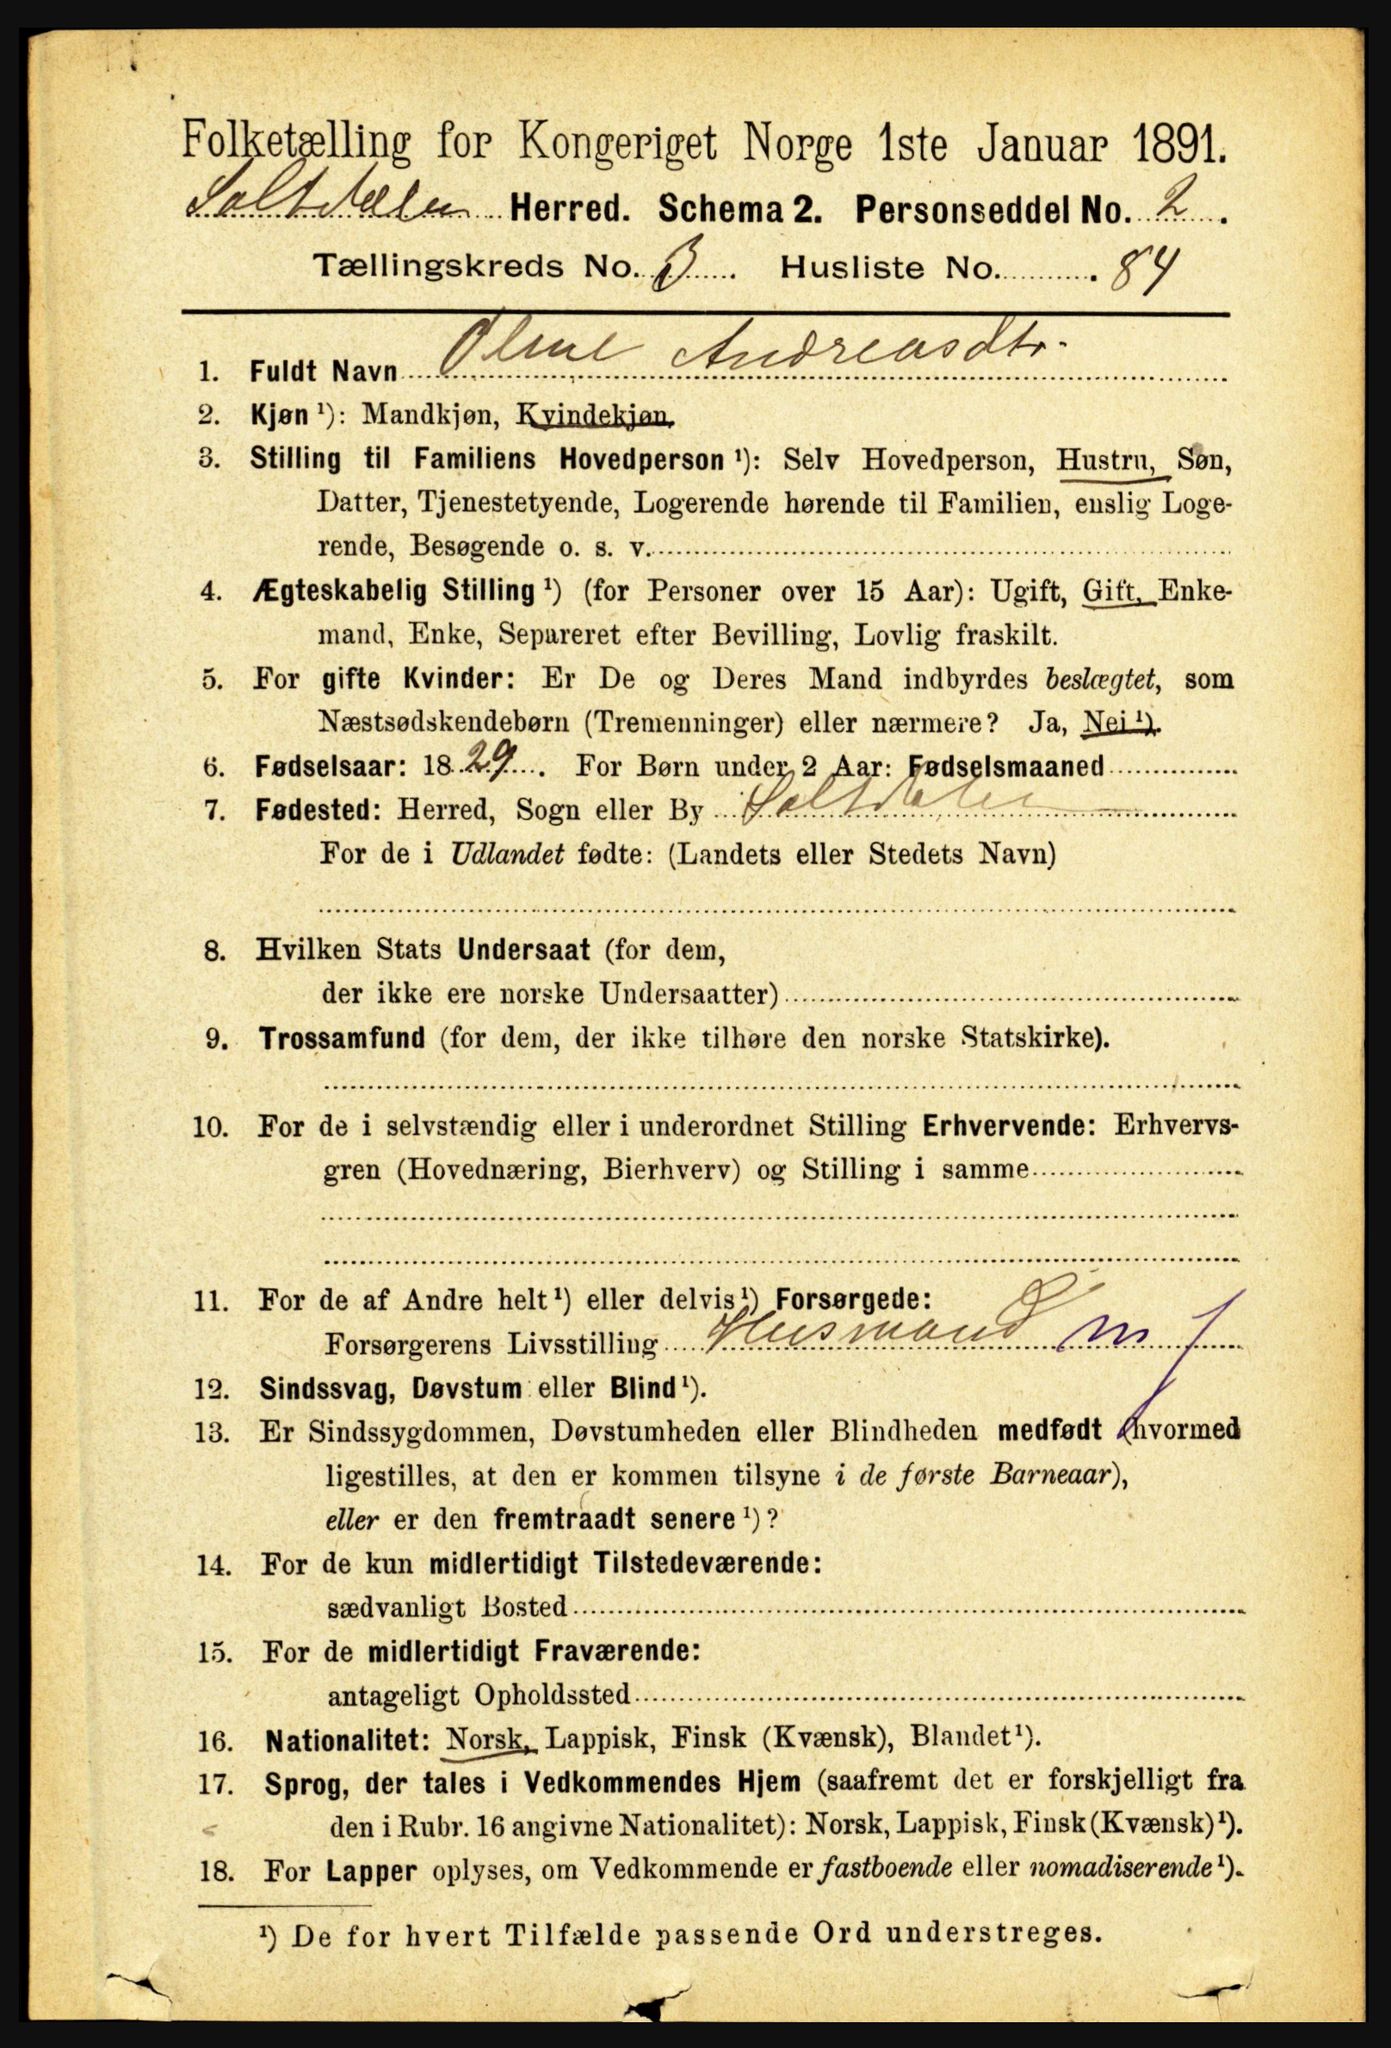 Folketælling for Kongeriget Norge 1ste Januar 1891.
Saltdalen Herred. Schema 2. Personseddel No. 2.
Tællingskreds No. 3. Husliste No. 84
1. Fuldt Navn Andreasdtr.
2. Kjøn ¹): Mandkjøn, Kvindekjøn.
3. Stilling til Familiens Hovedperson ¹): Selv Hovedperson, Hustru, Søn,
Datter, Tjenestetyende, Logerende hørende til Familien, enslig Loge-
rende, Besøgende o. s. v.
4. Ægteskabelig Stilling ¹) (for Personer over 15 Aar): Ugift, Gift, Enke-
mand, Enke, Separeret efter Bevilling, Lovlig fraskilt.
5. For gifte Kvinder: Er De og Deres Mand indbyrdes beslægtet, som
Næstsødskendebørn (Tremenninger) eller nærmere? Ja, Nei ¹).
6. Fødselsaar: 1829. For Børn under 2 Aar: Fødselsmaaned
7. Fødested: Herred, Sogn eller By Saltdalen
For de i Udlandet fødte: (Landets eller Stedets Navn)
8. Hvilken Stats Undersaat (for dem,
der ikke ere norske Undersaatter)
9. Trossamfund (for dem, der ikke tilhøre den norske Statskirke).
10. For de i selvstændig eller i underordnet Stilling Erhvervende: Erhvervs-
gren (Hovednæring, Bierhverv) og Stilling i samme
11. For de af Andre helt ¹) eller delvis ¹) Forsørgede:
Forsørgerens Livsstilling Husmand m j
12. Sindssvag, Døvstum eller Blind ¹).
13. Er Sindssygdommen, Døvstumheden eller Blindheden medfødt (hvormed
ligestilles, at den er kommen tilsyne i de første Barneaar),
eller er den fremtraadt senere ¹)?
14. For de kun midlertidigt Tilstedeværende:
sædvanligt Bosted
15. For de midlertidigt Fraværende:
antageligt Opholdssted
16. Nationalitet: Norsk, Lappisk, Finsk (Kvænsk), Blandet ¹).
17. Sprog, der tales i Vedkommendes Hjem (saafremt det er forskjelligt fra
den i Rubr. 16 angivne Nationalitet): Norsk, Lappisk, Finsk (Kvænsk) ¹).
18. For Lapper oplyses, om Vedkommende er fastboende eller nomadiserende ¹).
¹) De for hvert Tilfælde passende Ord understreges.